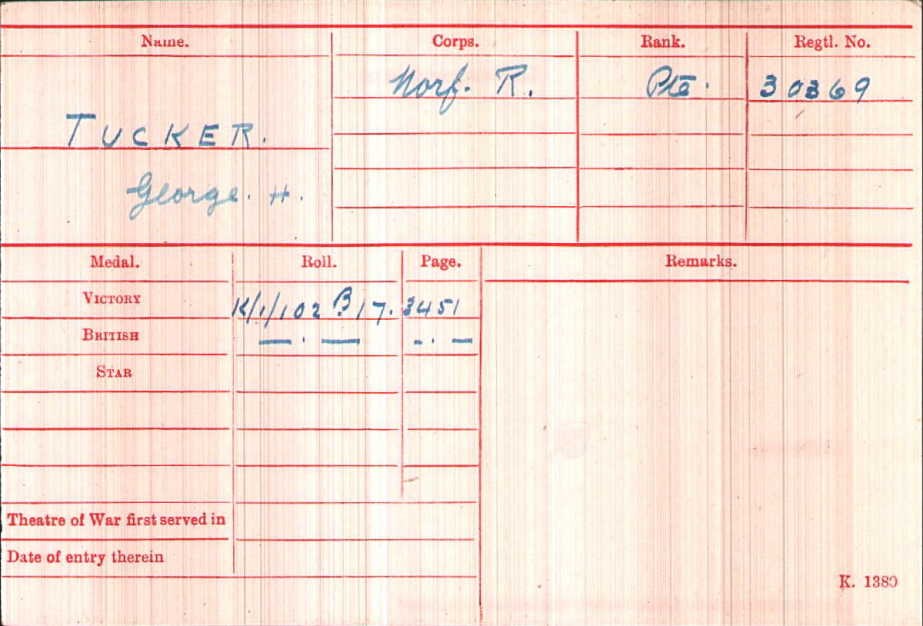 Name. Corps. Rank. Regtl. No.
Norf. R. Pte. 30369
TUCKER.
George. H.
Medal. Roll. Page. Remarks.
VICTORY K/1/102 B17. 3451
BRITISH — . — - . —
STAR
Theatre of War first served in
Date of entry therein
K. 1380